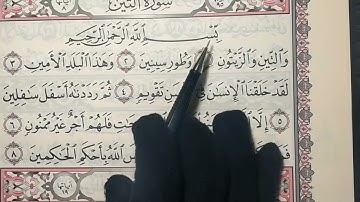 سورة التين
بِسْمِ اللَّهِ الرَّحْمَٰنِ الرَّحِيمِ
وَالتِّينِ وَالزَّيْتُونِ ١ وَطُورِ سِينِينَ ٢ وَهَٰذَا الْبَلَدِ الْأَمِينِ ٣
لَقَدْ خَلَقْنَا الْإِنسَٰنَ فِي تَقْوِيمٍ ٤ ثُمَّ رَدَدْنَٰهُ أَسْفَلَ سَٰفِلِينَ
٥ إِلَّا فَلَهُمْ أَجْرٌ غَيْرُ مَمْنُونٍ ٦
اللَّهُ بِأَحْكَمِ الْحَٰكِمِينَ ٨